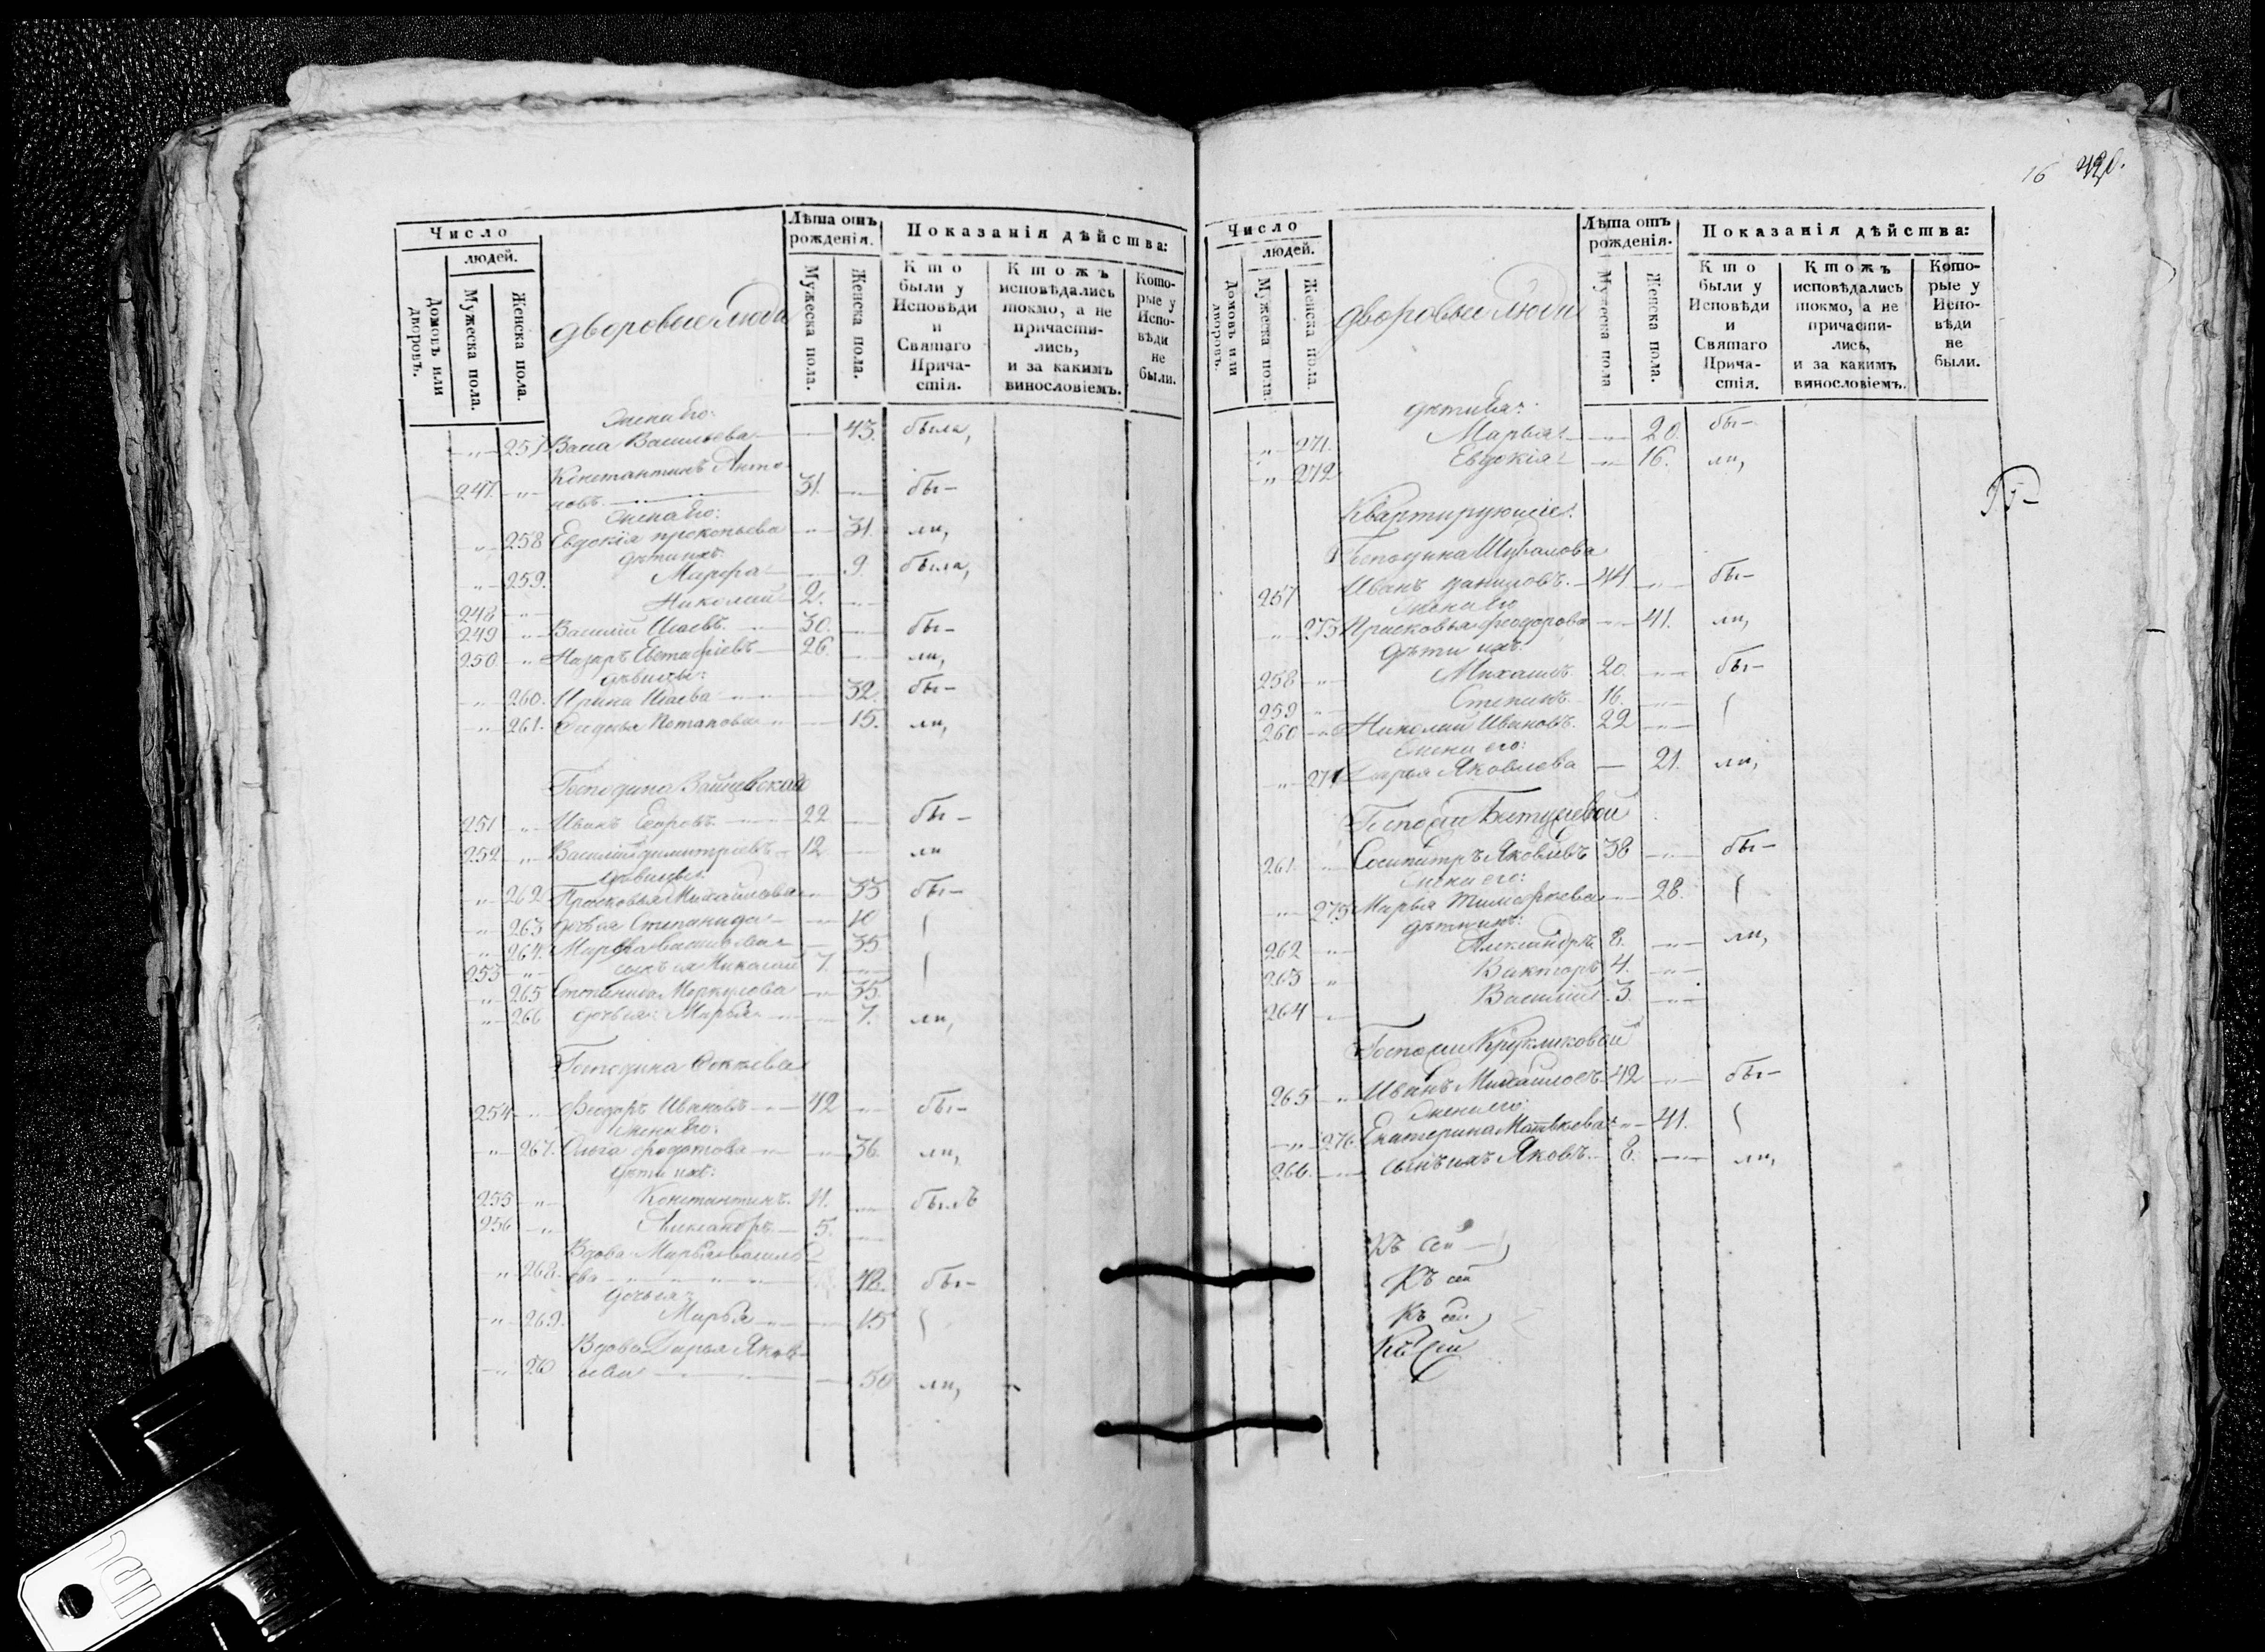 Число
людей.
Домовъ или дворовъ.
Мужеска пола.
Женска пола.
дворовые Люди
Лѣта отъ рожденія.
Мужеска пола.
Женска пола.
Показанія дѣйства:
Кто были у Исповѣди и Святаго Прича-стія.
Ктожъ исповѣдались токмо, а не причасти-лись, и за какимъ винословіемъ.
Кото-рые у Испо-вѣди не были.
Жена Его:
" 257 Васса Васильева 43. была,
Константинъ Анто-
247. " новъ. 31. бы-
Жена Его:
" 258 Евдокія прокопьева " 31. ли,
дѣти ихъ:
" 259. Марфа 9. была,
248 " Николай 2.
249 " Василій Исаевъ. 30. бы-
250 " Назаръ Евстафіевъ 26. ли,
дѣвицы:
" 260. Ирина Исаева 32. бы-
" 261. Федосья Потапова 15. ли,
Господина
251 " Иванъ Егоровъ 22 бы-
252 " Василій димитріевъ 12 ли
дѣвицы:
" 262 Прасковья Михайлова 35 бы-
" 263 дочь ея Степанида 10
" 264. Марфа Васильева 35
253 " сынъ ея Николай 7.
" 265 Степанида Меркулова 35
" 266 дочь ея: Марья 7. ли,
Господина
254 " Феодоръ Ивановъ 42 бы-
Жена Его:
" 267. Ольга федотова 36. ли,
дѣти ихъ:
255 " Константинъ. 11. былъ
256 " Александръ 5.
Вдова Марья василь-
" 268. ева 42. бы-
дочь ея
" 269. Марья 15
Вдова Дарья Яков-
" 270 лева 50 ли,
16
Число
людей.
Домовъ или дворовъ.
Мужеска пола.
Женска пола.
дворовые Люди
Лѣта отъ рожденія.
Мужеска пола
Женска пола.
Показанія дѣйства:
Кто были у Исповѣди и Святаго Прича-стія.
Ктожъ исповѣдались токмо, а не причасти-лись, и за какимъ винословіемъ.
Кото-рые у Испо-вѣди не были.
дѣти Ея:
" 271. Марья 20. бы-
" 272 Евдокія 16. ли,
Квартирующіе.
Господина Шувалова
257 Иванъ даниловъ. 44 бы-
Жена Его
" 273 Прасковья феодорова 41. ли,
Дѣти ихъ:
258 " Михаилъ 20. бы-
259 " Степанъ. 16.
260 " Николай Ивановъ. 22
Жена его:
" 274 Дарья Яковлева 21. ли,
Госпожи
261. " Сосипатръ Яковлевъ 38 бы-
Жена его:
" 275 Марья Тимофеева 28.
дѣти ихъ:
262 " Александръ 8. ли,
263 " Викторъ 4.
264 Василій 3.
Госпожи Кругликовой
265 " Иванъ Михайловъ 42 бы-
Жена его:
" 276. Екатерина Матвѣева 41.
266. сынъ ихъ Яковъ. 8. ли,
Къ сей
Къ сей
Къ сей
Къ сей